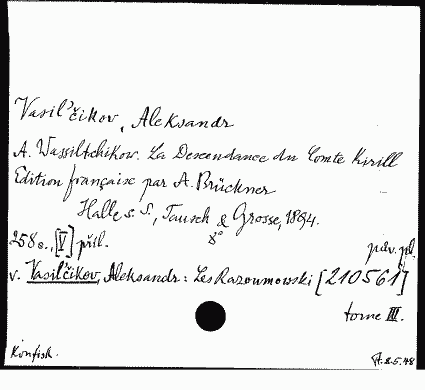 Vasil'čikov, Aleksandr
A. Wassiltchikow. La Descendance du Comte Kirill
Edition française par A. Brückner
Halle s. S., Tausch & Grosse, 1894.
8°
258 s., [V] příl.
v. Vasil'čikov, Aleksandr: Les Razoumowski [210561]
tome III.
Konfisk.
8.5.48